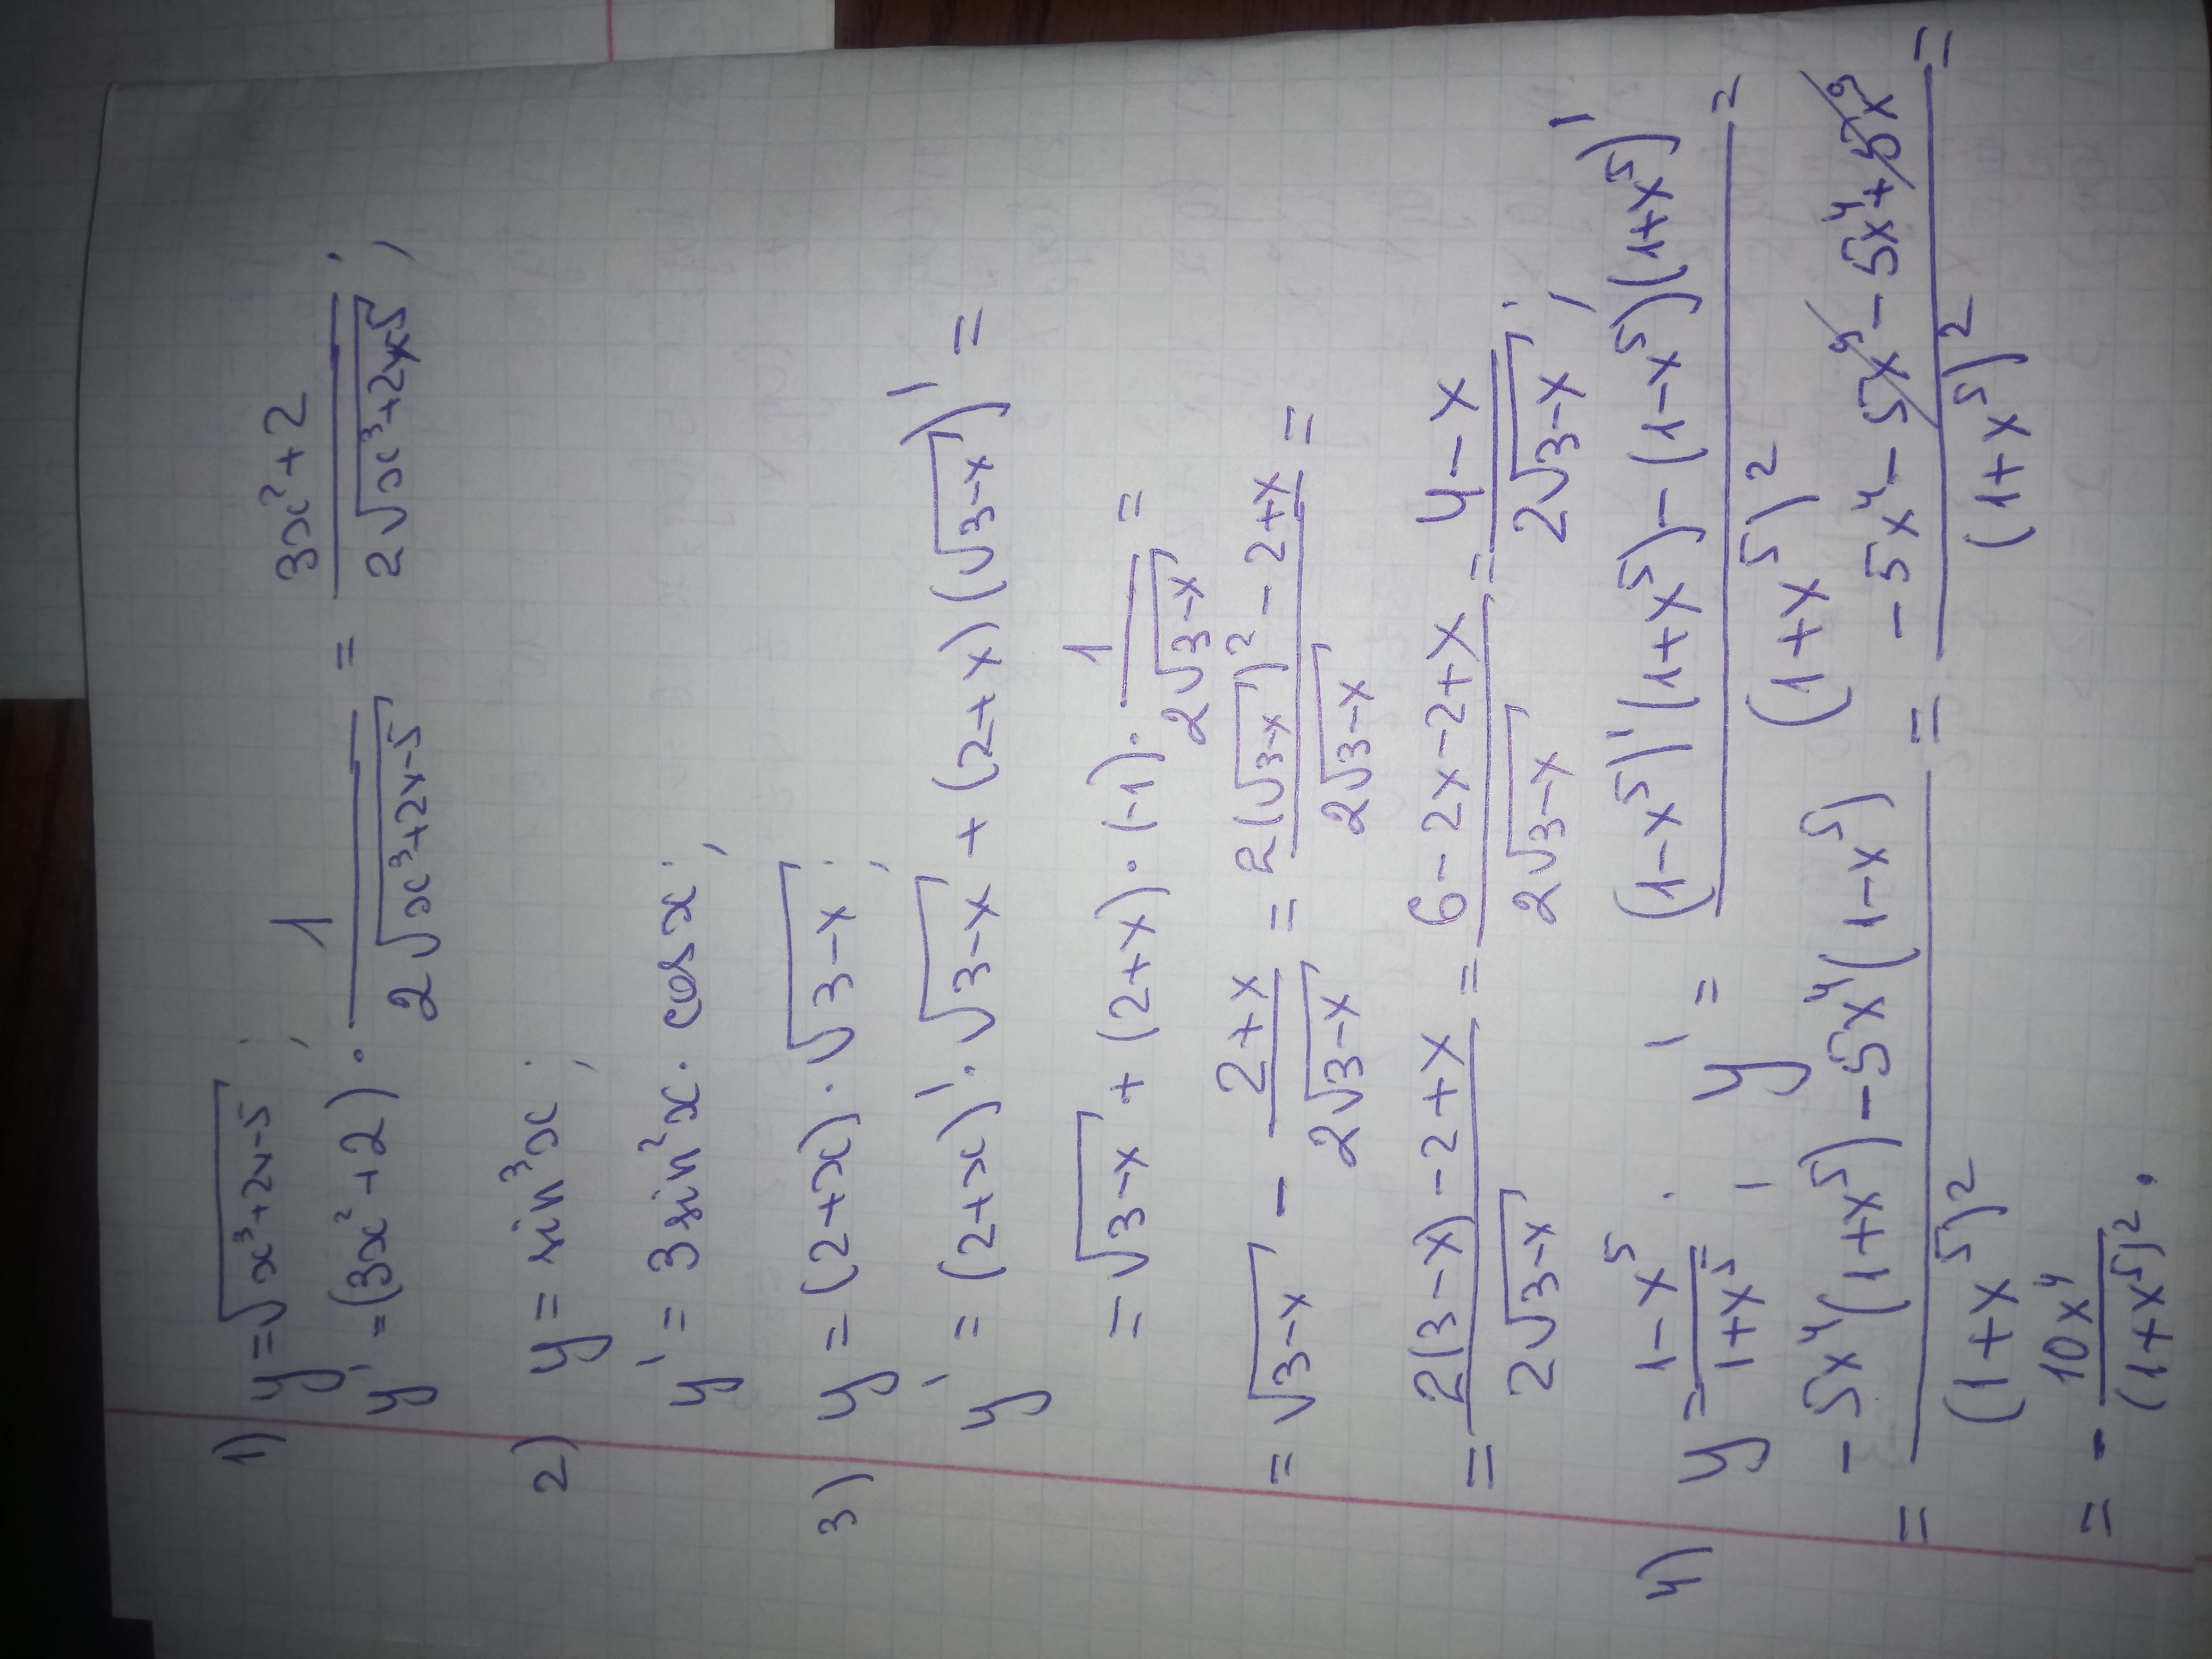 1) y = √(x³+2x-5) ;
y' = (3x²+2) · 1/(2√(x³+2x-5)) = (3x²+2)/(2√(x³+2x-5)) ;
2) y = sin³x ;
y' = 3sin²x · cosx ;
3) y = (2+x) · √(3-x) ;
y' = (2+x)' · √(3-x) + (2+x)(√(3-x))' =
= √(3-x) + (2+x) · (-1) · 1/(2√(3-x)) =
= √(3-x) - (2+x)/(2√(3-x)) = (2(√(3-x))² - 2+x)/(2√(3-x)) =
= (2(3-x)-2+x)/(2√(3-x)) = (6-2x-2+x)/(2√(3-x)) = (4-x)/(2√(3-x)) ;
4) y = (1-x⁵)/(1+x⁵) ; y' = ((1-x⁵)'(1+x⁵)-(1-x⁵)(1+x⁵)')/(1+x⁵)² =
= (-5x⁴(1+x⁵)-5x⁴(1-x⁵))/(1+x⁵)² = (-5x⁴-5x⁹-5x⁴+5x⁹)/(1+x⁵)² =
= - 10x⁴/(1+x⁵)² .